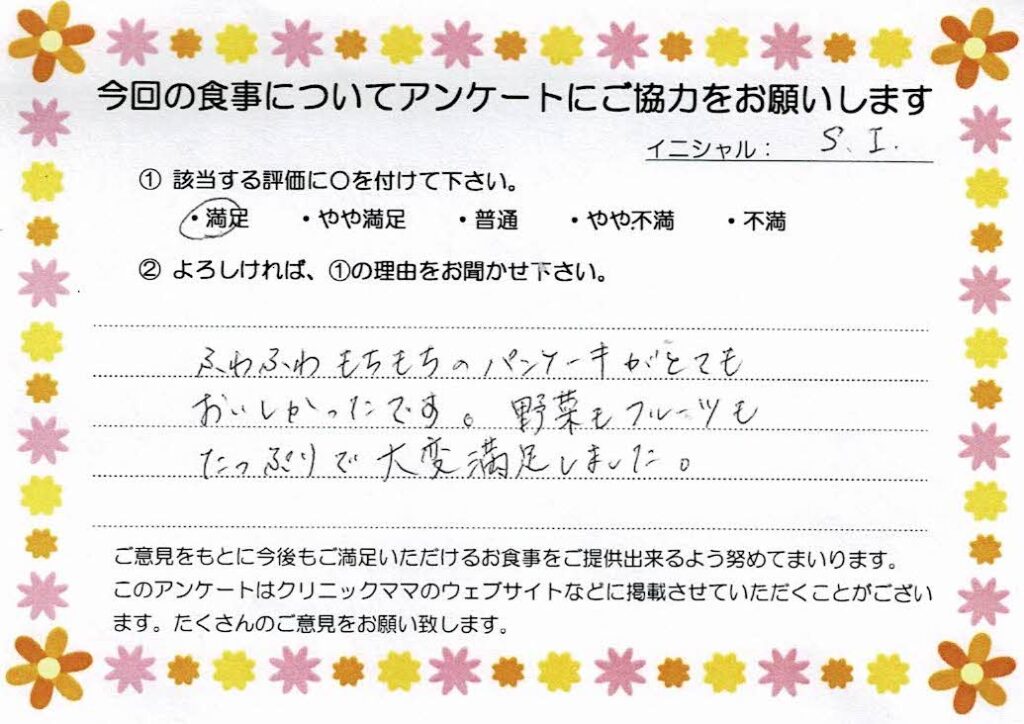 今回の食事についてアンケートにご協力をお願いします
イニシャル： S. I.
① 該当する評価に〇を付けて下さい。
・満足 ・やや満足 ・普通 ・やや不満 ・不満
② よろしければ、①の理由をお聞かせ下さい。
ふわふわもちもちのパンケーキがとても
おいしかったです。野菜もフルーツも
たっぷりで大変満足しました。
ご意見をもとに今後もご満足いただけるお食事をご提供出来るよう努めてまいります。
このアンケートはクリニックママのウェブサイトなどに掲載させていただくことがござい
ます。たくさんのご意見をお願い致します。